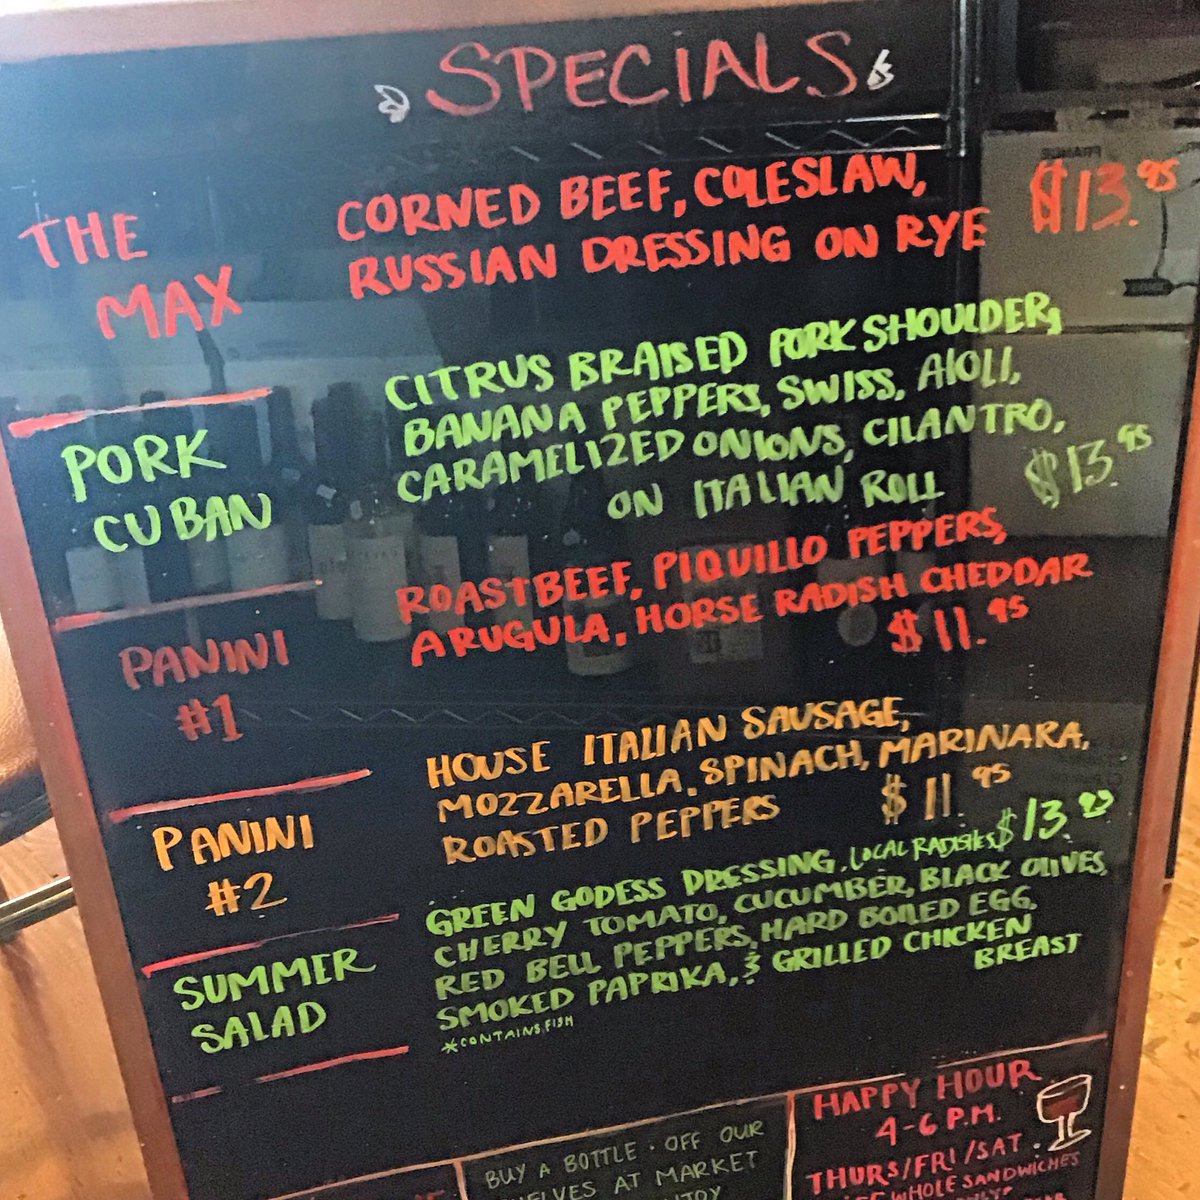 SPECIALS
THE MAX
CORNED BEEF, COLESLAW,
RUSSIAN DRESSING ON RYE $13.95
PORK CUBAN
CITRUS BRAISED PORK SHOULDER,
BANANA PEPPERS, SWISS, AIOLI,
CARAMELIZED ONIONS, CILANTRO,
ON ITALIAN ROLL $13.95
PANINI #1
ROAST BEEF, PIQUILLO PEPPERS,
ARUGULA, HORSE RADISH CHEDDAR
$11.95
PANINI #2
HOUSE ITALIAN SAUSAGE,
MOZZARELLA, SPINACH, MARINARA,
ROASTED PEPPERS $11.95
SUMMER SALAD
GREEN GODESS DRESSING, LOCAL RADISHES $13.
CHERRY TOMATO, CUCUMBER, BLACK OLIVES,
RED BELL PEPPERS, HARD BOILED EGG,
SMOKED PAPRIKA, & GRILLED CHICKEN
BREAST
*CONTAINS FISH
BUY A BOTTLE · OFF OUR
SHELVES AT MARKET
HAPPY HOUR
4-6 P.M.
THURS/FRI/SAT
WHOLE SANDWICHES